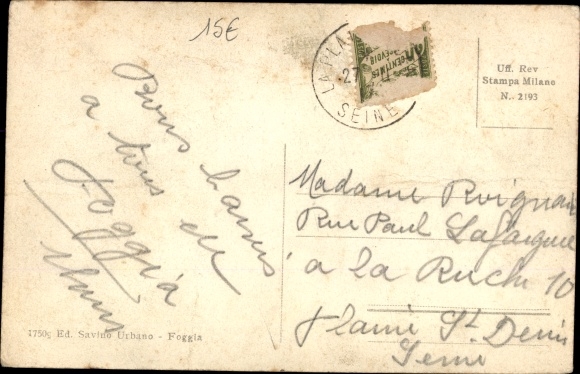 15€
LA PLA
27
SEINE
CENTIMES
Uff. Rev
Stampa Milano
N. 2193
Bons
a tous de
Foggia
Madame Rvignan
Rue Paul Lafargue
a la Ruche 10
Plaine St. Denis
Seine
1750; Ed. Savino Urbano - Foggia